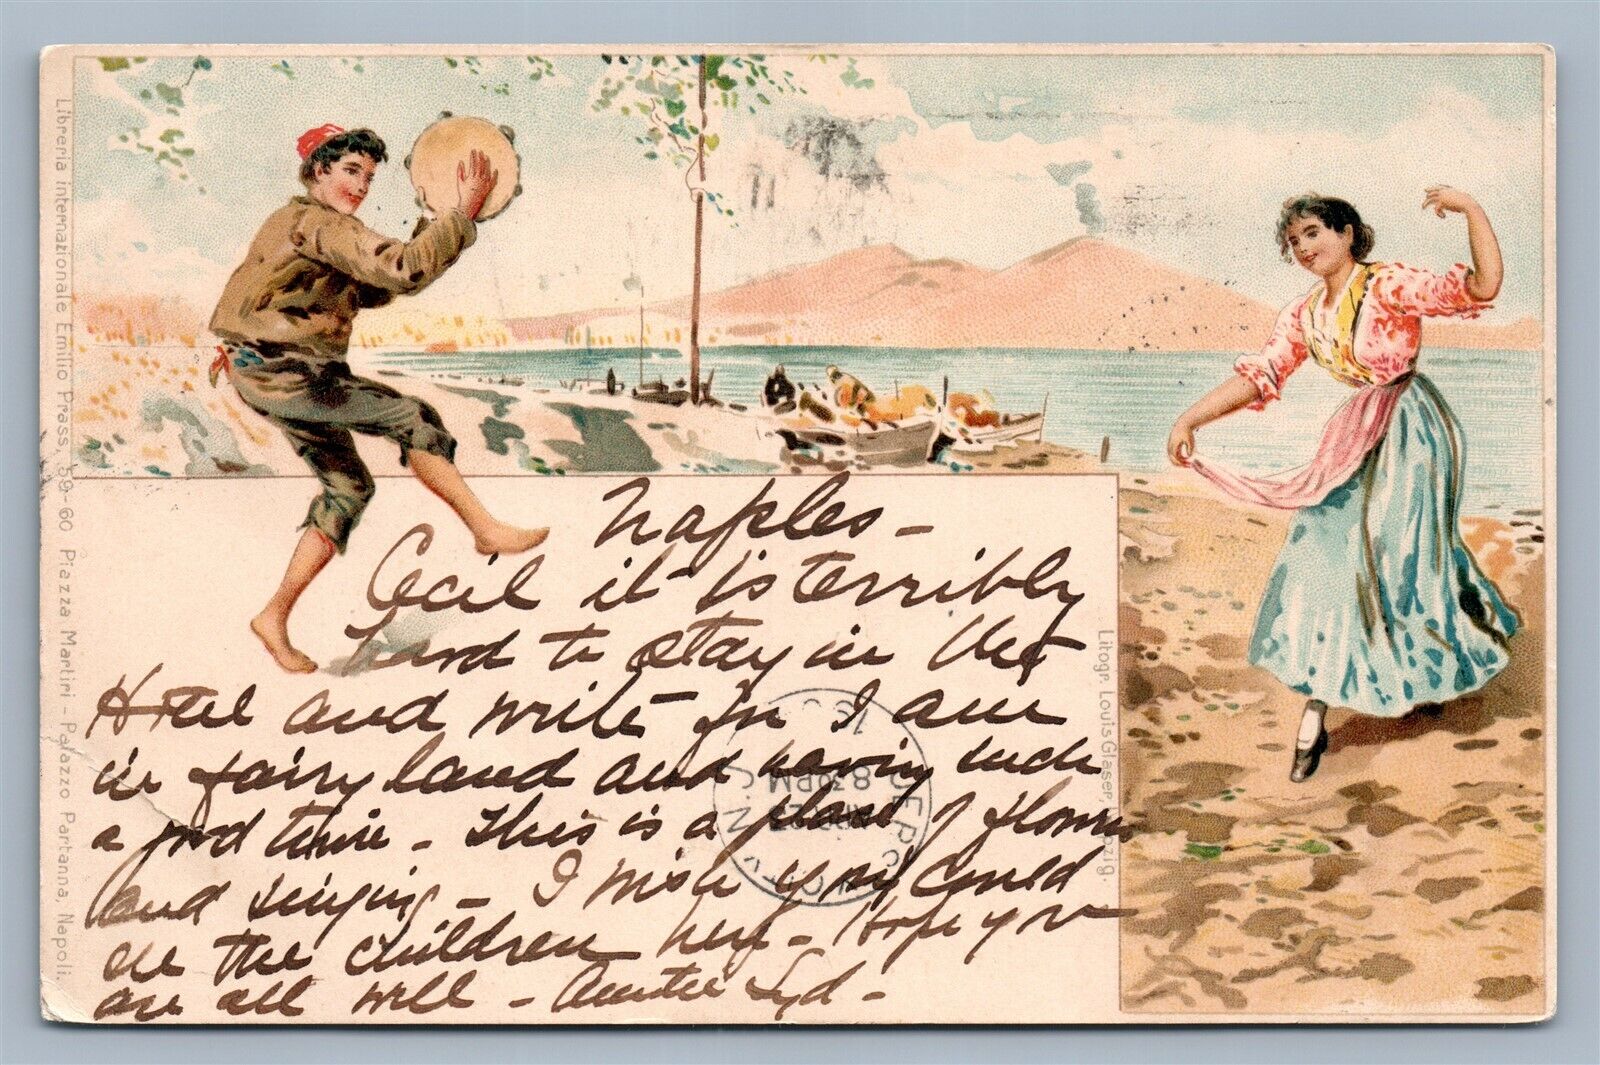 Naples -
Cecil it is terribly
hard to stay in the
Hotel and write for I am
in fairyland and having such
a good time - This is a place of flowers
and singing - I wish you could
see the children here - Hope you
are all well - Auntie Syd -
Libreria internazionale Emilio Prass, 59-60 Piazza Martiri - Palazzo Partanna, Napoli.
Litogr. Louis Glaser,
8 30 PM
N.J.